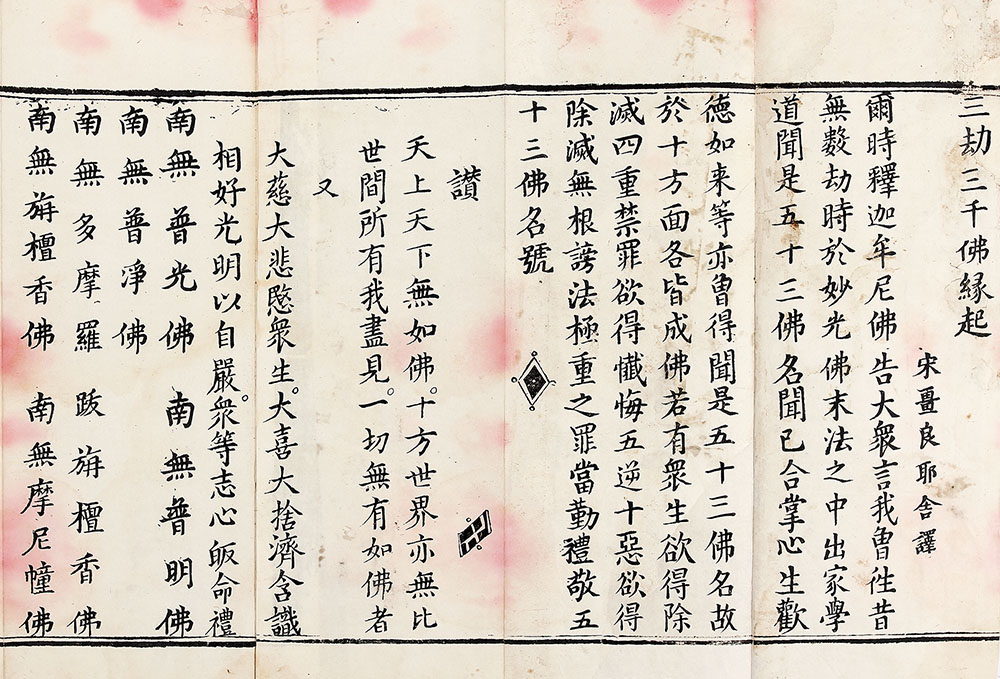 三劫三千佛緣起
宋畺良耶舍譯
爾時釋迦牟尼佛告大衆言我曾徃昔
無數劫時於妙光佛末法之中出家學
道聞是五十三佛名聞已合掌心生歡
德如来等亦曾得聞是五十三佛名故
於十方面各皆成佛若有衆生欲得除
滅四重禁罪欲得懺悔五逆十惡欲得
除滅無根謗法極重之罪當勤禮敬五
十三佛名號
讃
天上天下無如佛。十方世界亦無比
世間所有我盡見。一切無有如佛者
又
大慈大悲愍衆生。大喜大捨濟含識
相好光明以自嚴。衆等志心皈命禮
南無普光佛 南無普明佛
南無普淨佛
南無多摩羅跋旃檀香佛
南無旃檀香佛 南無摩尼幢佛